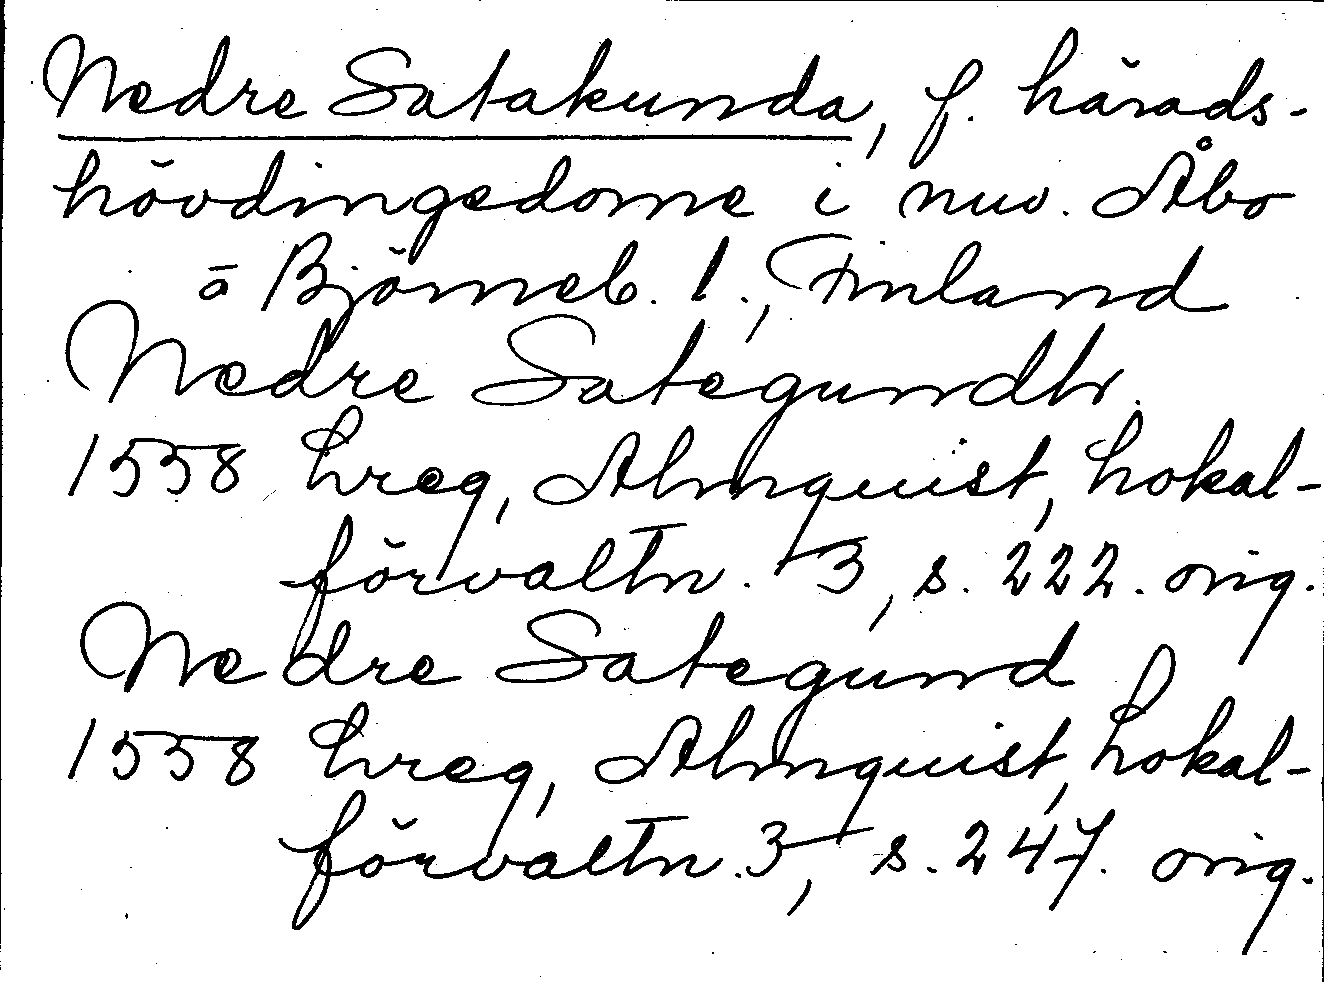 Nedre Satakunda, f. härads-
hövdingedöme i nuv. Åbo
o Björneb. l., Finland
Nedre Sategundh.
1558 Lreg, Almquist, Lokal-
förvaltn. 3, s. 222. orig.
Nedre Sategund
1558 Lreg, Almquist, Lokal-
förvaltn. 3, s. 247. orig.